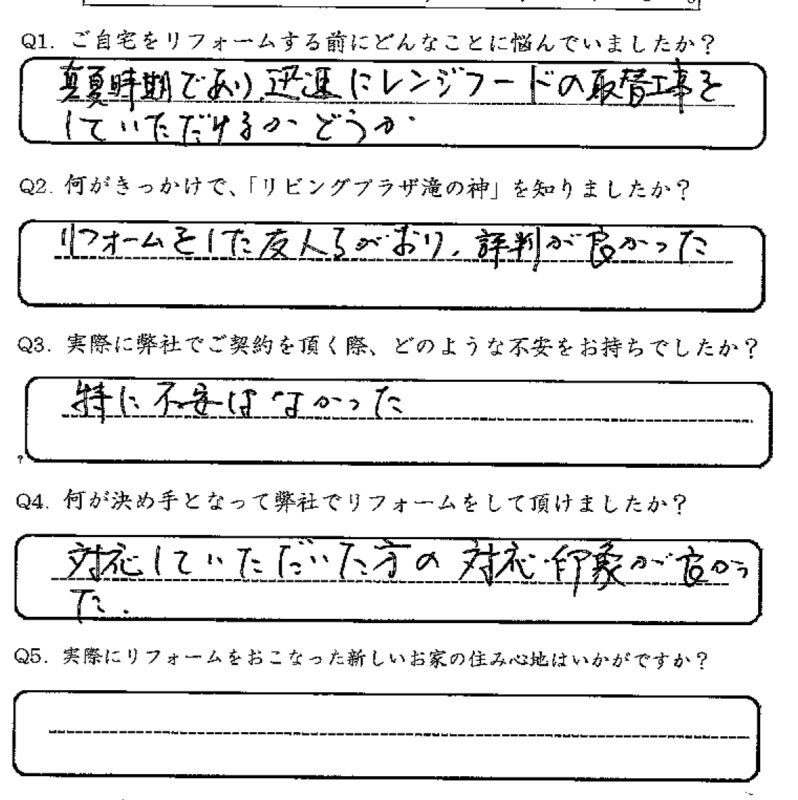 Q1. ご自宅をリフォームする前にどんなことに悩んでいましたか？
真夏時期であり、迅速にレンジフードの取替工事を
していただけるかどうか
Q2. 何がきっかけで、「リビングプラザ滝の神」を知りましたか？
リフォームをした友人らがおり、評判が良かった
Q3. 実際に弊社でご契約を頂く際、どのような不安をお持ちでしたか？
特に不安はなかった
Q4. 何が決め手となって弊社でリフォームをして頂けましたか？
対応していただいた方の対応・印象が良かっ
た.
Q5. 実際にリフォームをおこなった新しいお家の住み心地はいかがですか？